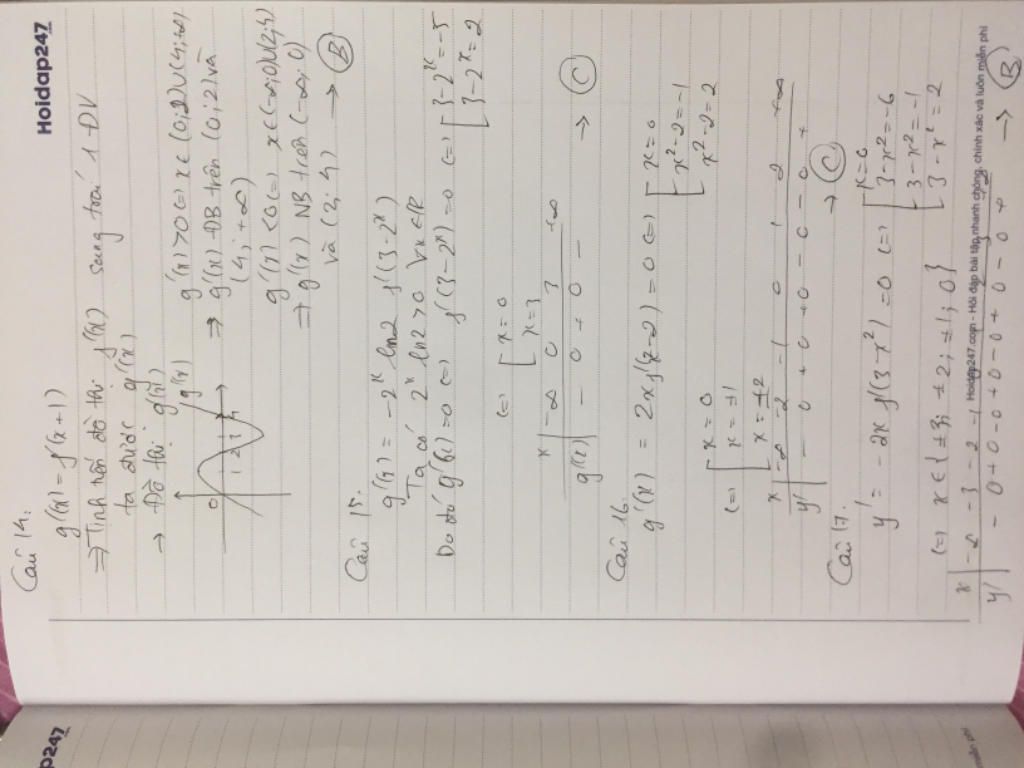 Hoidap247
Câu 14.
g'(x) = f'(x+1)
⇒ Tịnh tiến đồ thị f'(x) sang trái 1 ĐV
ta được g'(x)
→ Đồ thị g'(x)
g'(x)
0 1 2 3 4
g'(x) > 0 (=) x ∈ (0;2)∪(4;+∞)
⇒ g'(x) ĐB trên (0;2) và
(4;+∞)
g'(x) < 0 (=) x ∈ (-∞;0)∪(2;4)
⇒ g'(x) NB trên (-∞;0)
và (2;4) → B
Câu 15.
g'(x) = -2^x ln2 f'(3-2^x)
Ta có 2^x ln2 > 0 ∀x ∈ R
Do đó g'(x) = 0 (=) f'(3-2^x) = 0 (=) [ 3-2^x = -5
3-2^x = 2
(=) [ x = 0
x = 3
x | -∞ 0 3 +∞
g'(x) | - 0 + 0 - → C
Câu 16.
g'(x) = 2x f'(x²-2) = 0 (=) [ x = 0
x²-2 = -1
x²-2 = 2
(=) [ x = 0
x = ±1
x = ±2
x | -∞ -2 -1 0 1 2 +∞
y' | - 0 + 0 + 0 - 0 - 0 +
→ C
Câu 17.
y' = -2x f'(3-x²) = 0 (=) [ x = 0
3-x² = -6
3-x² = -1
3-x² = 2
(=) x ∈ {±3; ±2; ±1; 0}
x | -∞ -3 -2 -1
Hoidap247.com - Hỏi đáp bài tập nhanh chóng, chính xác và luôn miễn phí
y' | - 0 + 0 - 0 + 0 - 0 + 0 - 0 + → B
p247
miễn phí